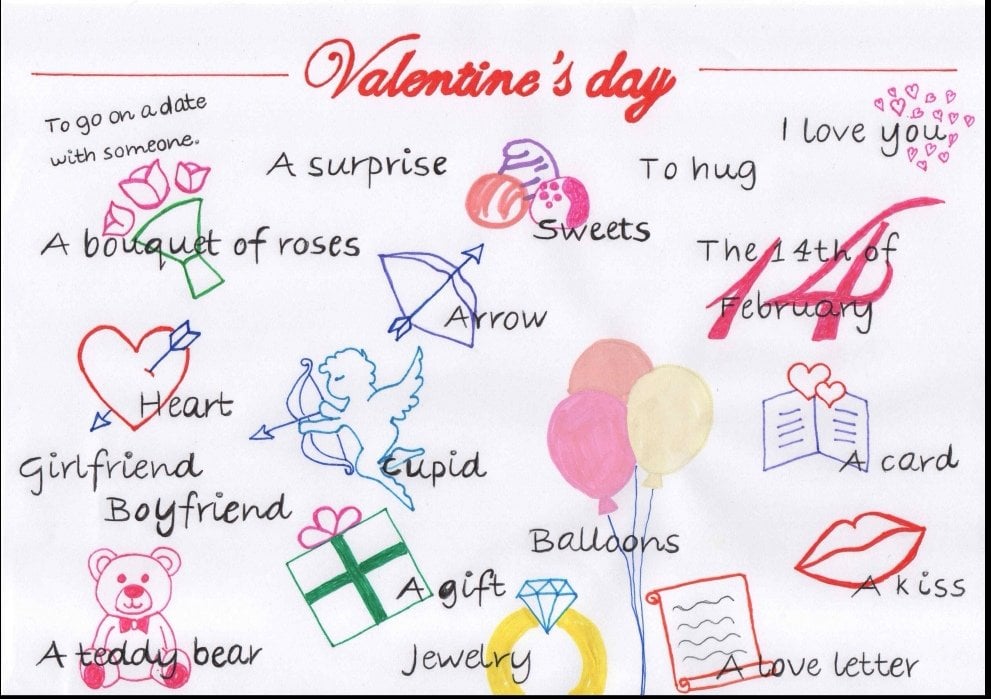 Valentine's day
To go on a date
with someone.
I love you
A surprise
To hug
Sweets
A bouquet of roses
The 14th of
February
14
Arrow
Heart
Girlfriend
Boyfriend
Cupid
A card
Balloons
A gift
A kiss
A teddy bear
Jewelry
A love letter